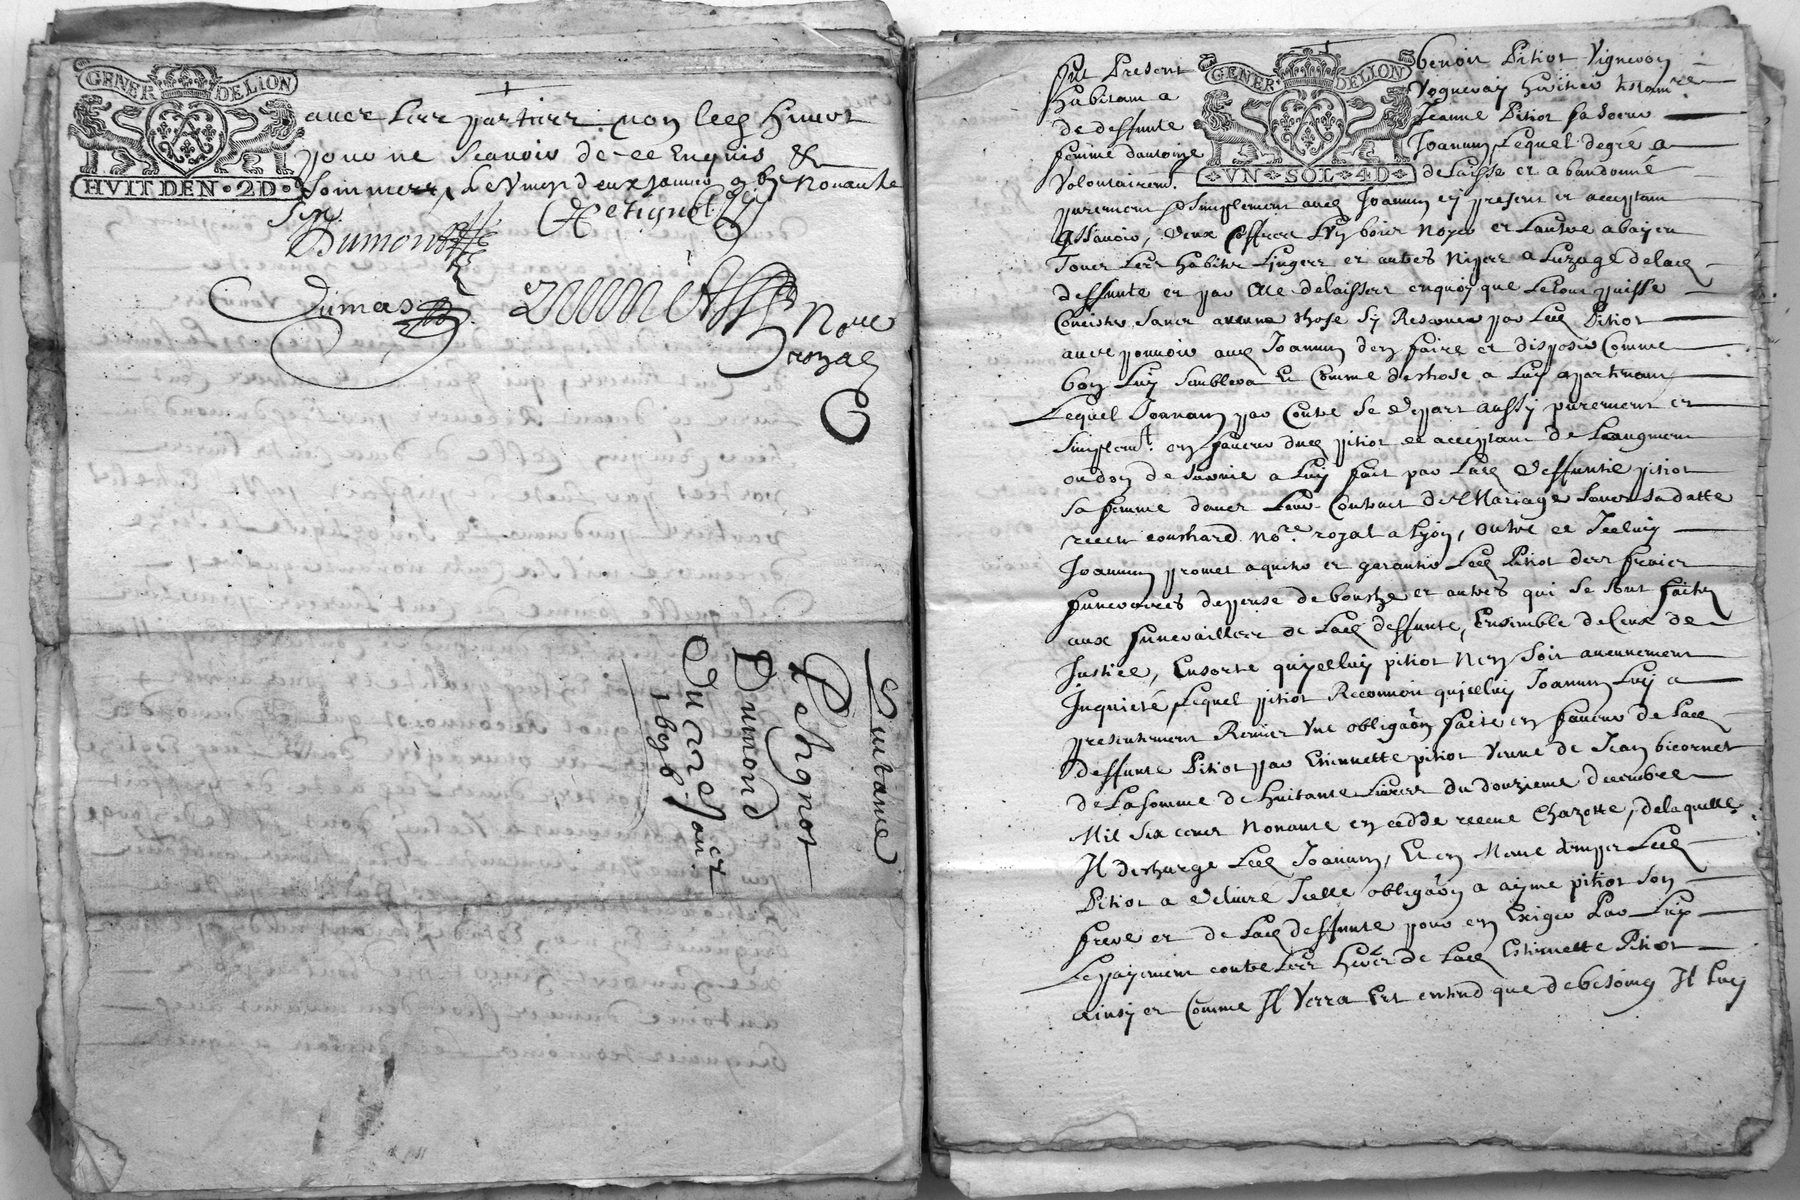 GENER DE LION
HVIT DEN • 2D •
avec lesd parties non led himot
pour ne scavoir de ce enquis &
sommerer le vingt deux janvier 9 bc nonante
six
Petignot
Dumond
Dumas
Nore
Royal
Quitance
Pethgnot
Dumond
Du 22e Janer
1696
GENER DE LION
VN • SOL • 4D •
fut Present benoit Pitiot Vigneron
habitant a Vogneray heritier testamre
de deffunte Jeanne Pitiot sa soeur
femme dantoine Joannin Lequel degré a
Volontairemt delaissé et abandonné
purement & simplement aud Joannin cy present et acceptant
assavoir, deux coffres Lun bois noyer et Lautre a bayen
Tous Les habits Linges et autres nipes a Luzage de lad
deffunte et par Elle delaisses enquoy que Le tout puisse
Concister sans aucune chose sy Reserver par Led Pitiot
avec pouvoir aud Joannin den faire et disposer Comme
bon Luy semblera Et Comme de chose a Luy apartenant
Lequel Joannin par Contre se depart aussy purement et
simplemt en faveur dud pitiot ce acceptant de Laugment
ou don de survie a Luy fait par Lad deffunte pitiot
sa femme dans Leur Contract de Mariage sous sa datte
receu couchard nore royal a lyon, outre ce Icelluy
Joannin promet aquiter et garantir Led Pitiot des fraix
funeraires depense de bouche et autres qui se sont faits
aux funerailles de Lad deffunte, Ensemble de Ceux de
Justice, Ensorte quycelluy pitiot Nen soit aucunement
Inquieté, Lequel pitiot Reconnoit quycelluy Joannin Luy a
presentement Remis Une obligaon faite en faveur de Lad
deffunte Pitiot par Etiennette pitiot veuve de Jean bicornet
de La somme de huitante Livres du douzieme decembre
Mil six cens Nonante en cedde receue Chazotte, de laquelle
Il descharge Led Joannin, Et en Meme temps Led
Pitiot a delivré Icelle obligaon a ayme pitiot son
frere et de Lad deffunte pour en Exiger Par Luy
Le payement contre Les hers de Lad Estiennette Pitiot
ainsy et Comme Il Verra Est entend que de besoing Il Luy